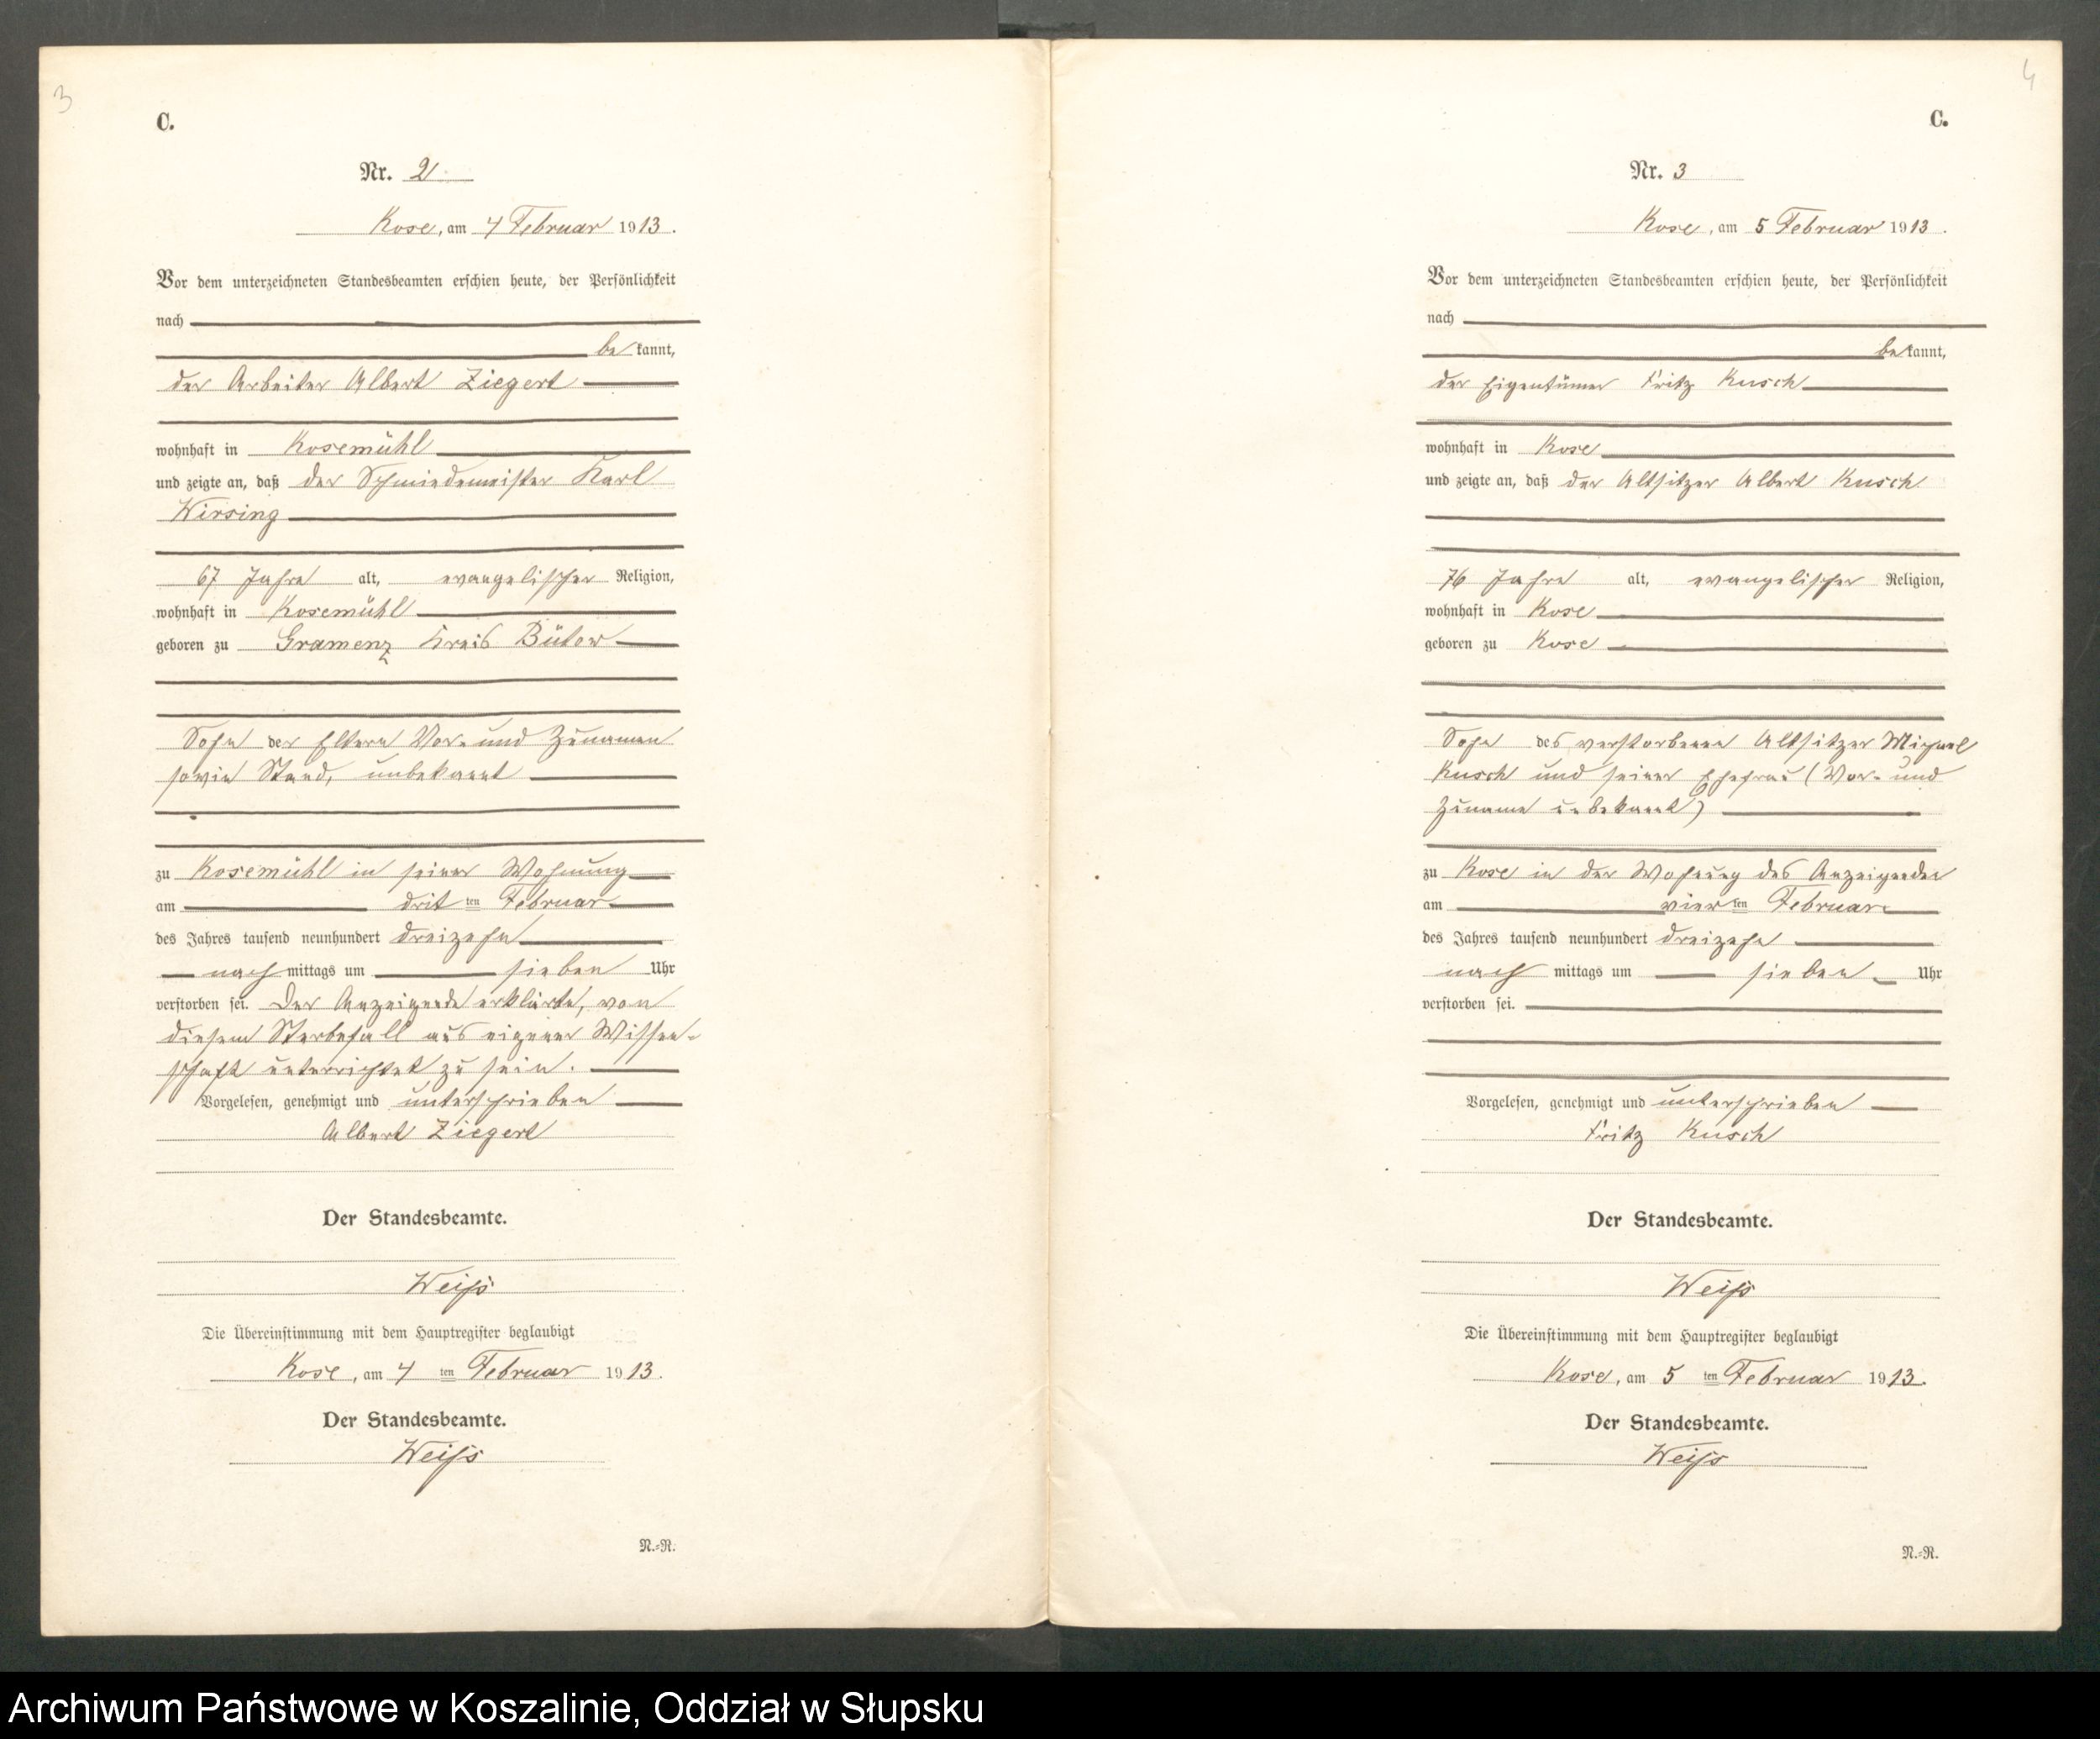 3
C.
Nr. 2
Kose, am 4 Februar 1913.
Vor dem unterzeichneten Standesbeamten erschien heute, der Persönlichkeit
nach
be kannt,
der Arbeiter Albert Ziegert
wohnhaft in Kosemühl
und zeigte an, daß der Schmiedemeister Karl
Wirsing
67 Jahre alt, evangelischer Religion,
wohnhaft in Kosemühl
geboren zu Gramenz Kreis Bütow
Sohn der Eltern Vor- und Zunamen
sowie Stand, unbekannt
zu Kosemühl in seiner Wohnung
am dritten Februar
des Jahres tausend neunhundert dreizehn
nach mittags um sieben Uhr
verstorben sei. Der Anzeigende erklärte, von
diesem Sterbefall aus eigener Wissen-
schaft unterrichtet zu sein.
Vorgelesen, genehmigt und unterschrieben
Albert Ziegert
Der Standesbeamte.
Weiß
Die Übereinstimmung mit dem Hauptregister beglaubigt
Kose, am 4 ten Februar 1913.
Der Standesbeamte.
Weiß
N.=R.
4
C.
Nr. 3
Kose, am 5 Februar 1913.
Vor dem unterzeichneten Standesbeamten erschien heute, der Persönlichkeit
nach
be kannt,
der Eigentümer Fritz Kusch
wohnhaft in Kose
und zeigte an, daß der Altsitzer Albert Kusch
76 Jahre alt, evangelischer Religion,
wohnhaft in Kose
geboren zu Kose
Sohn des verstorbenen Altsitzer Michael
Kusch und seiner Ehefrau (Vor- und
Zuname unbekannt)
zu Kose in der Wohnung des Anzeigenden
am vierten Februar
des Jahres tausend neunhundert dreizehn
nach mittags um sieben Uhr
verstorben sei.
Vorgelesen, genehmigt und unterschrieben
Fritz Kusch
Der Standesbeamte.
Weiß
Die Übereinstimmung mit dem Hauptregister beglaubigt
Kose, am 5 ten Februar 1913.
Der Standesbeamte.
Weiß
N.=R.
Archiwum Państwowe w Koszalinie, Oddział w Słupsku